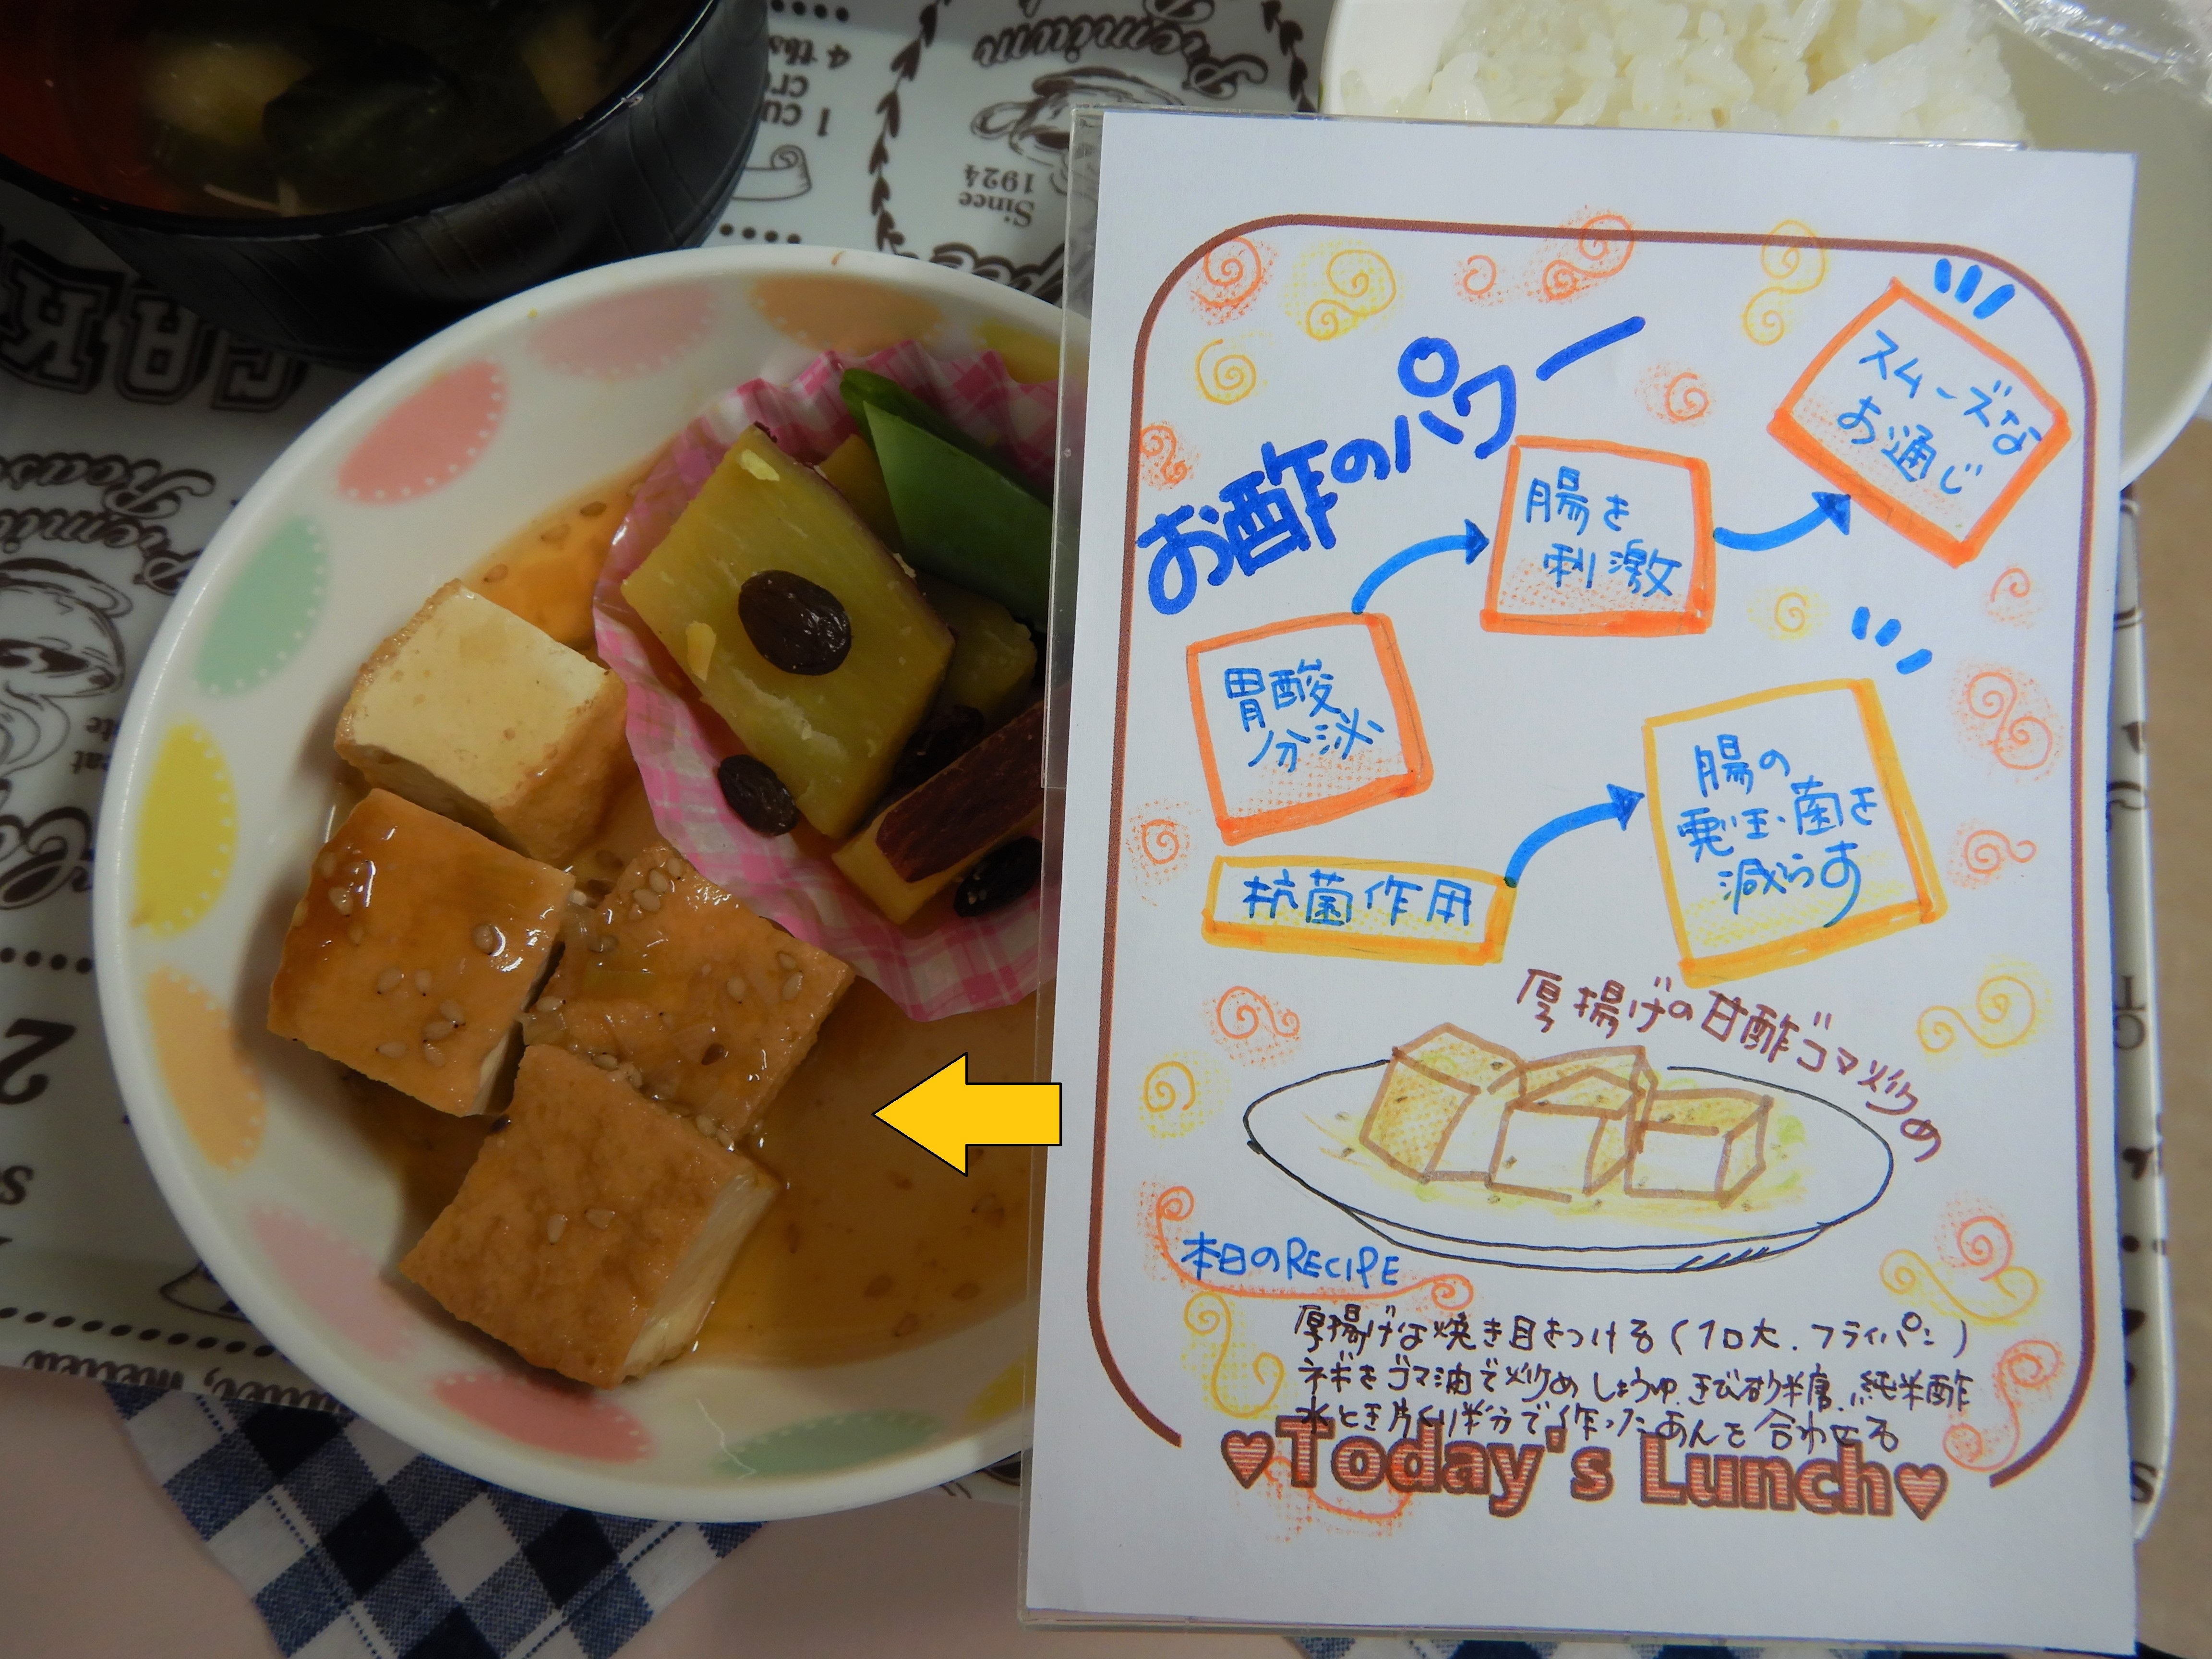 お酢のパワー
スムーズな
お通じ
腸を
刺激
胃酸
分泌
腸の
悪玉菌を
減らす
抗菌作用
厚揚げの甘酢ゴマ炒め
本日のRECIPE
厚揚げは焼き目をつける(1口大.フライパン)
ネギをゴマ油で炒め しょうゆ.きび砂糖.純米酢
水とき片くり半分で作ったあんを合わせる
♥Today's Lunch♥
Premium
Since
1924
4 tbs
1 cu
CAK
Premiu
2